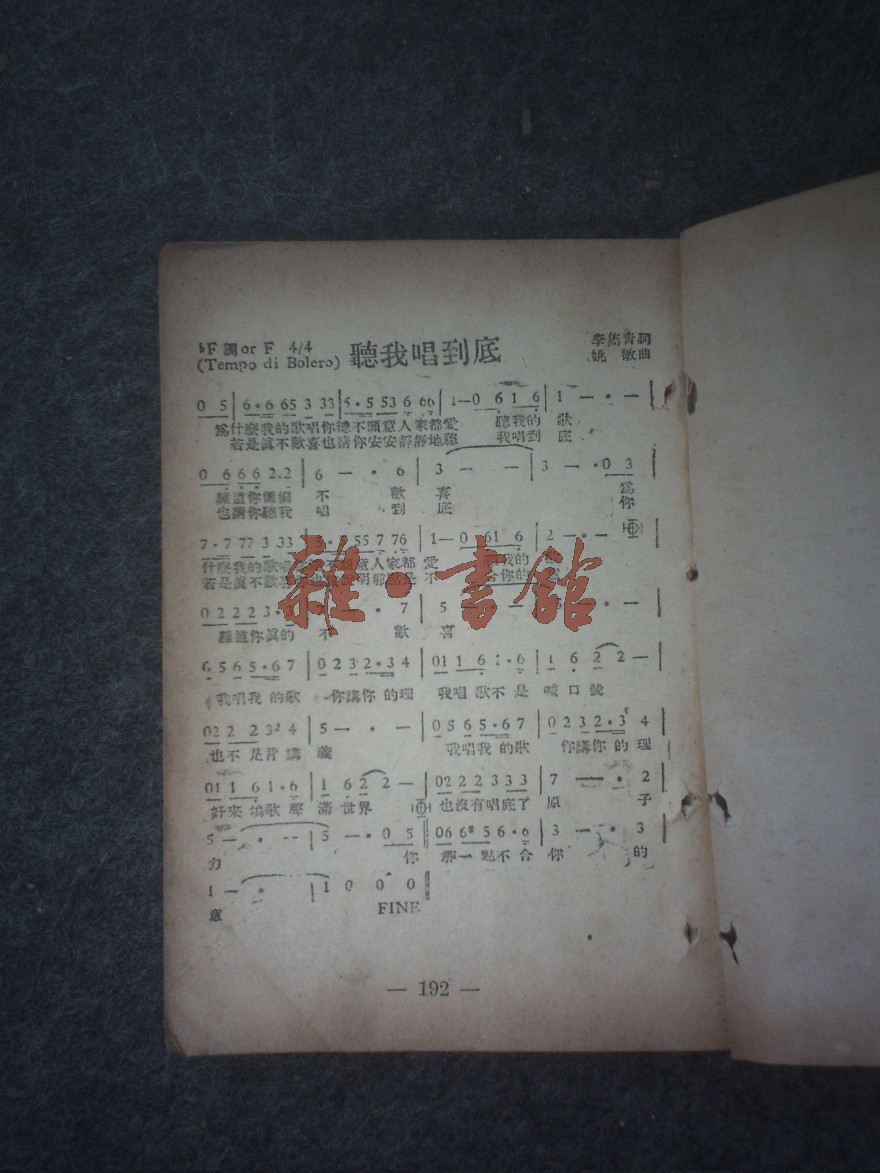 調or F 4/4
(Tempo di Bolero) 聽我唱到底
李雋青詞
姚敏曲
0 5 | 6·6 65 3 33 | 5·5 53 6 66 | 1—0 6 1 6 | 1 — · — |
爲什麼我的歌唱你總不願意人家都愛 聽我的 歌
若是眞不歡喜也請你安安靜靜地聽 我唱到 底
0 6 6 6 2.2 | 6 — · 6 | 3 — — | 3 — ·0 3 |
難道你偏偏 不 歡 喜 爲
也請你聽我 唱 到 底 你
7·7 77 3 33 | 5· 55 7 76 | 1—0 61 6 | 2 — · — |
什麼我的歌唱 不願意人家都 愛 我的
若是眞不歡喜 明那點是 不 合你的
0 2 2 2 3·3 · 7 | 5 —
難道你眞的 不 歡 喜
5 6 5·6 7 | 0 2 3 2·3 4 | 01 1 6 1·6 | 1 6 2 2 — |
我唱我 的歌 你講你 的理 我唱 歌不 是 喊 口 號
02 2 2 3² 4 | 5 — · — | 0 5 6 5·6 7 | 0 2 3 2·3 4
也不 是背 講 義 我唱我 的歌 你講你 的 理
01 1 6 1·6 | 1 6 2 2 — | 02 2 2 3 3 3 | 7 — · 2
好來塢歌 聲 滿 世 界 也沒有唱底了 原 子
5 — · — | 5 — · 0 5 | 06 6 5 6·6 | 3 — · 3
力 你 那一 點不 合 你 的
1 — · | 1 0 0 0 |
意 FINE
雜·書館
— 192 —